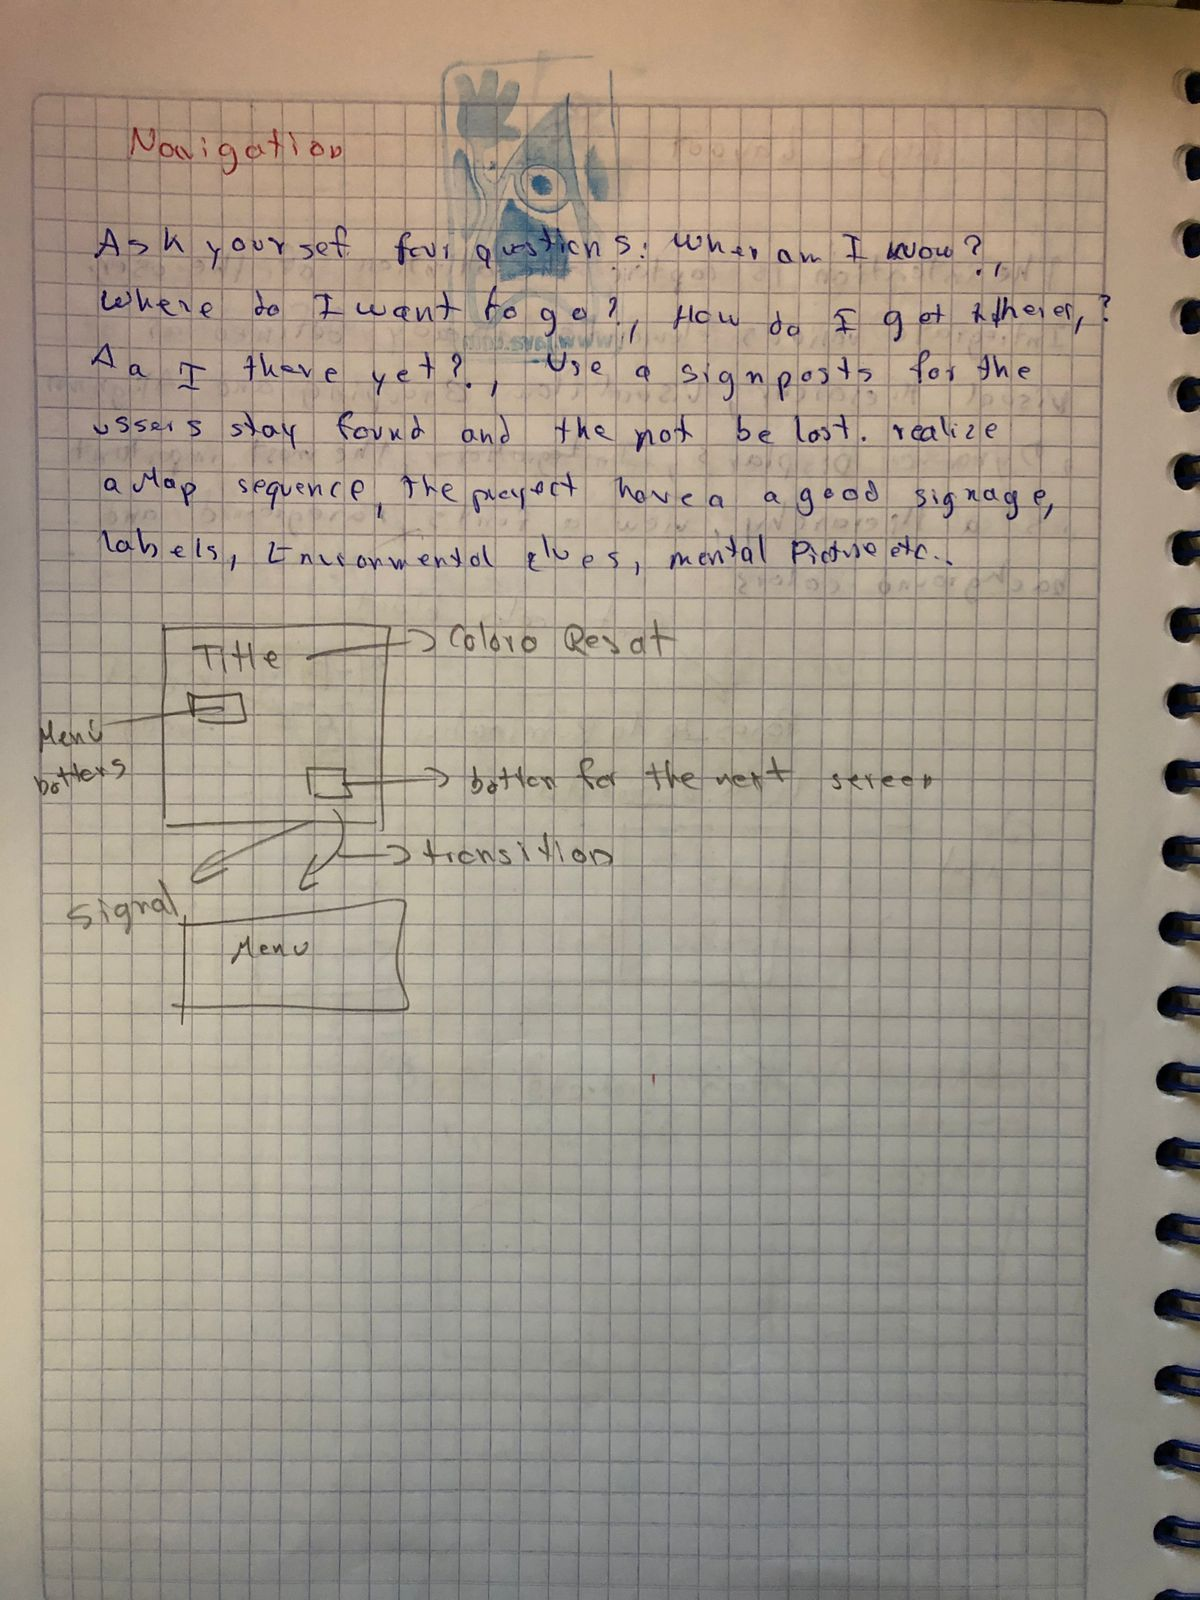 Navigation
Ask yourset four questions: Wher am I know?,
Where do I want to go?, How do I get there,?
Aa I there yet?., Use a signposts for the
ussers stay found and the not be lost. realize
a Map sequence, the proyect have a a good signage,
labels, Enviormental clues, mental Picture etc..
Title
Coloro Resat
Menu
bottons
botton for the next screen
transition
Signal
Menu
www.java.com